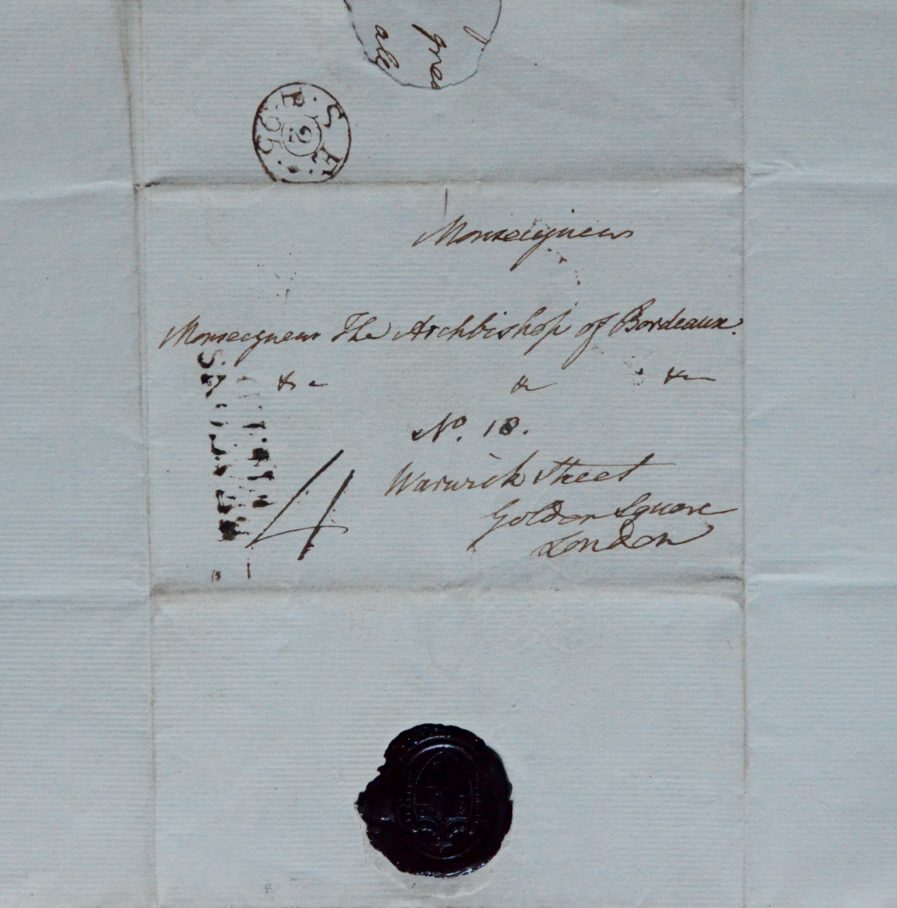 ale
SE
2
95
Monseigneur
Monseigneur The Archbishop of Bordeaux.
&c & &c
No. 18.
Warwick Street
Golden Square
London
4